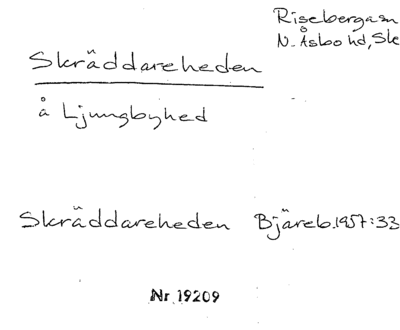 Riseberga sn
N. Åsbo hd, Sk
Skräddareheden
å Ljungbyhed
Skräddareheden Bjäreb. 1957:33
Nr 19209